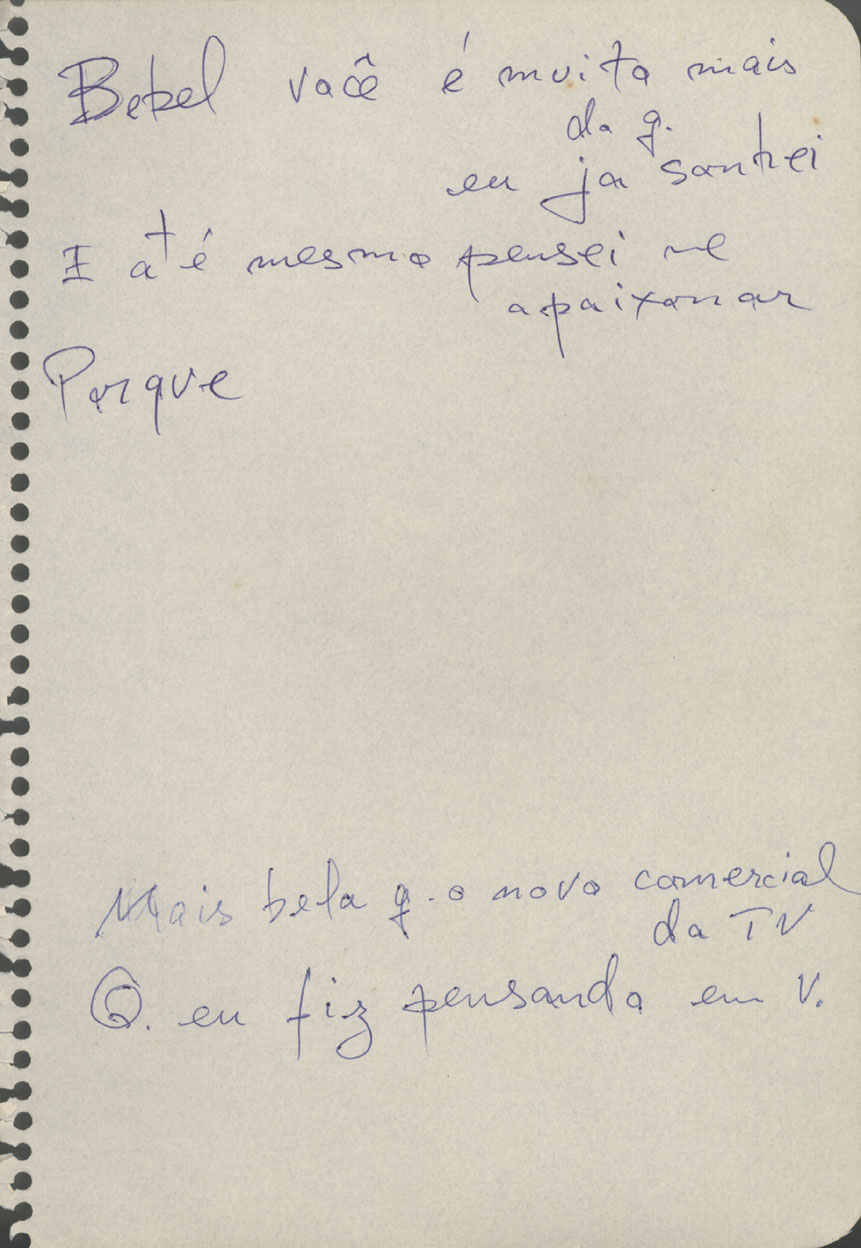 Bebel você é muito mais
do q.
eu já sonhei
E até mesmo pensei me
apaixonar
Porque
Mais bela q. o novo comercial
da TV
Q. eu fiz pensando em V.